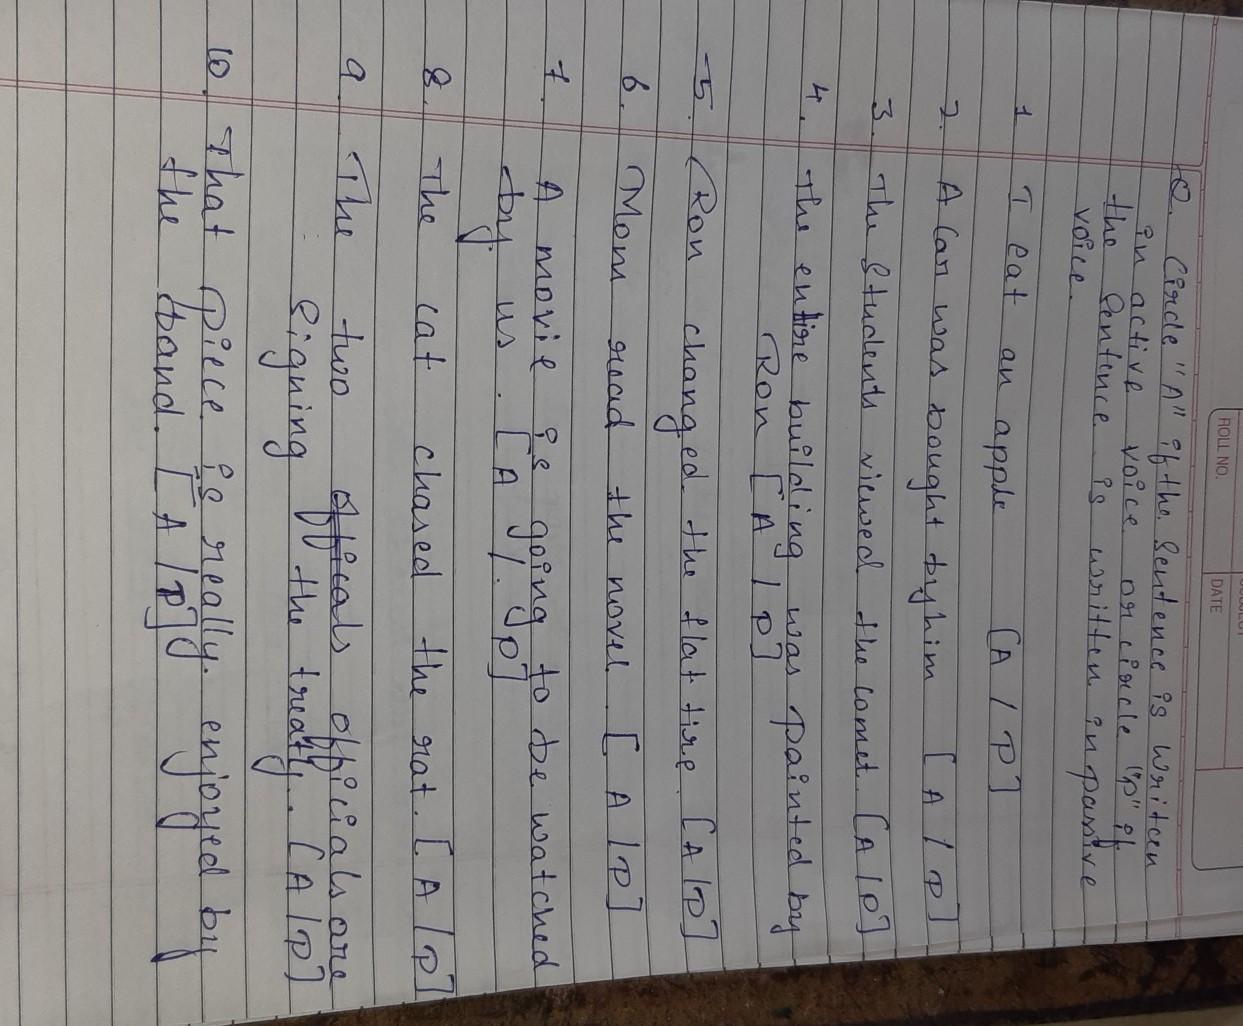 ROLL NO.
DATE
Q. Circle "A" if the Sentence is written
in active voice or circle "P" if
the Sentence is written in passive
voice.
1 I eat an apple [A / P]
2. A Car was bought by him [A / P]
3. The Students viewed the comet. [A / P]
4. The entire building was painted by
Ron [A / P]
5. Ron changed the flat tire. [A / P]
6. Mom read the novel. [A / P]
7. A movie is going to be watched
by us. [A / P]
8. The cat chased the rat. [A / P]
9. The two officials are
Signing the treaty. [A / P]
10. That piece is really enjoyed by
the band. [A / P]